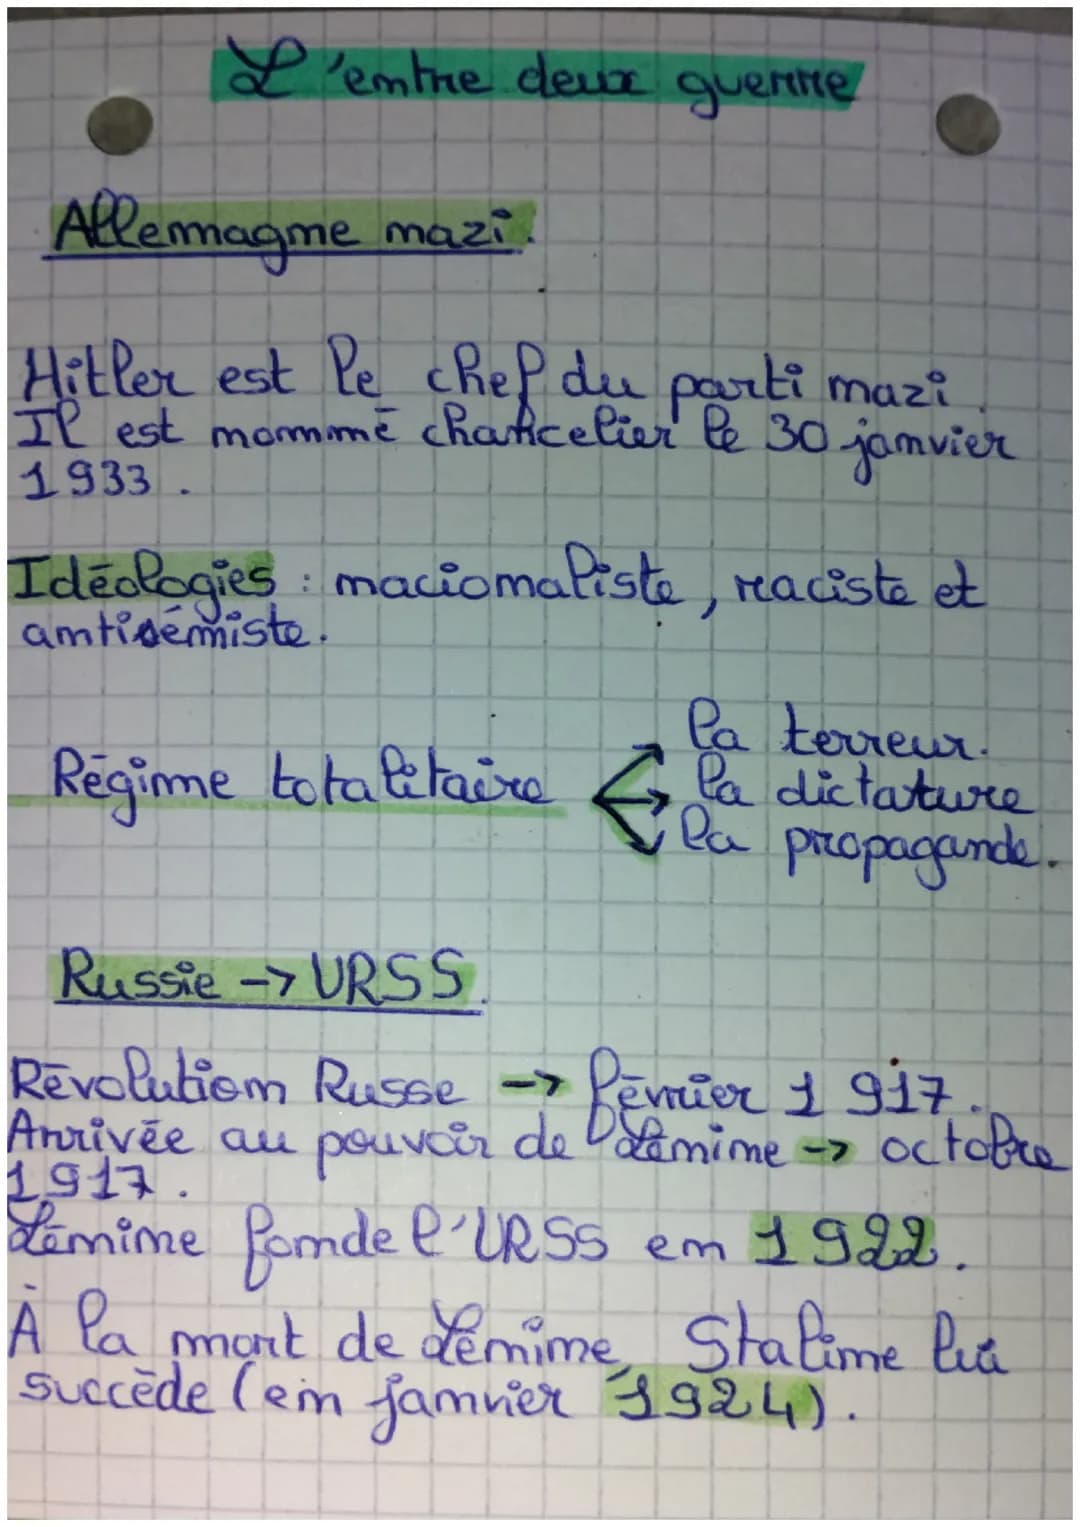 L'entre deux guerre
Allemagne nazi.
Hitler est le chef du parti nazi.
Il est nommé chancelier le 30 janvier
1933.
Idéologies : nacionaliste, raciste et
antisémiste.
Régime totalitaire → la terreur.
→ la dictature
→ la propagande.
Russie -> URSS.
Révolution Russe -> février 1917.
Arrivée au pouvoir de Lénine -> octobre
1917.
Lénine fonde l'URSS en 1922.
À la mort de Lénine, Staline lui
succède (en janvier 1924).